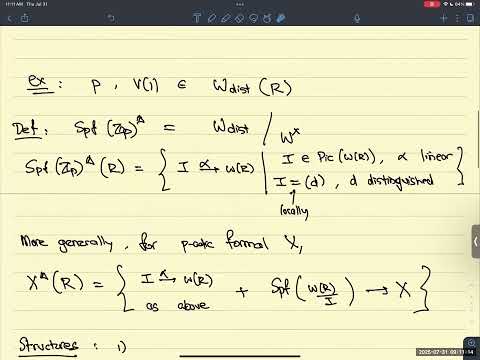 11:11 AM Thu Jul 31
64%
Ex : p , V(1) ∈ W_dist (R)
Def : Spf (Z_p)^𝔻 = W_dist / W^×
Spf (Z_p)^𝔻 (R) = { I →^α W(R) | I ∈ Pic (W(R)) , α linear
I = (d) , d distinguished }
↑ locally
More generally, for p-adic formal X,
X^𝔻 (R) = { I →^α W(R) as above + Spf ( W(R)/I ) → X }
Structures : 1)
2025-07-31 09:11:14